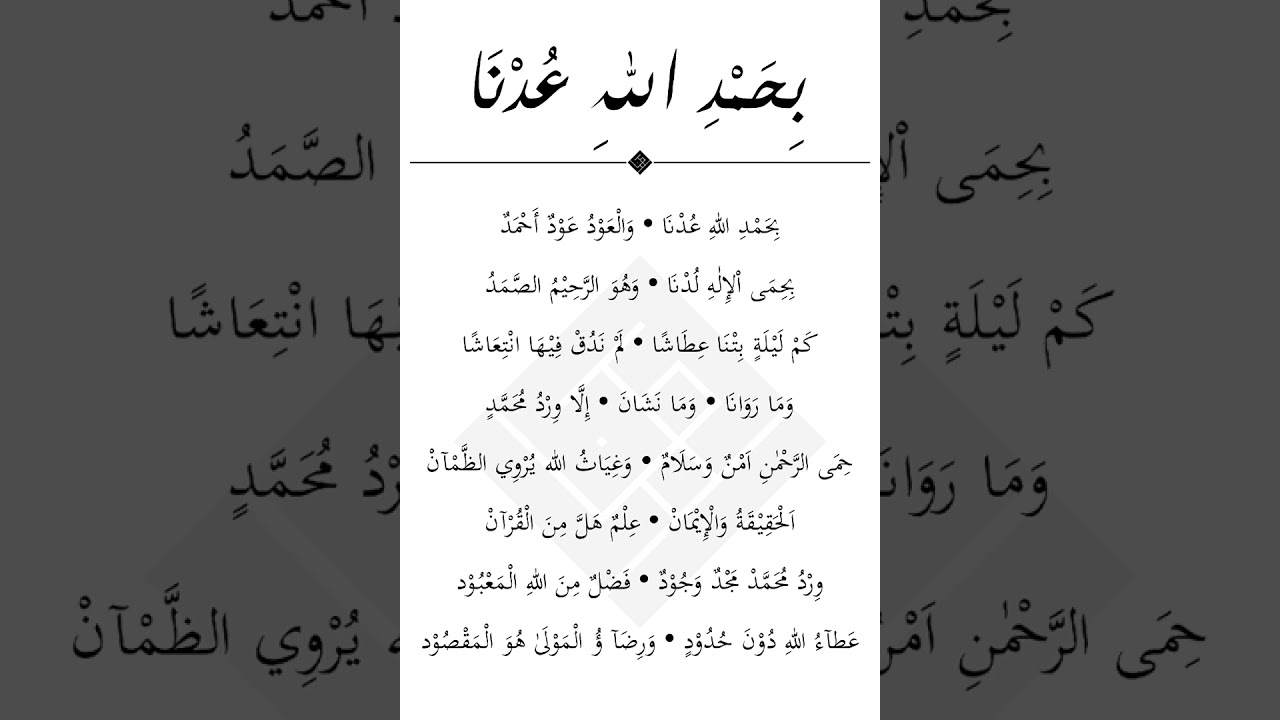 بِحَمْدِ اللهِ عُدْنَا
بِحَمْدِ اللهِ عُدْنَا • وَالْعَوْدُ عَوْدٌ أَحْمَدٌ
بِحِمَى اْلإِلٰهِ لُدْنَا • وَهُوَ الرَّحِيْمُ الصَّمَدُ
كَمْ لَيْلَةٍ بِتْنَا عِطَاشًا • لَمْ نَذُقْ فِيْهَا انْتِعَاشًا
وَمَا رَوَانَا • وَمَا نَشَانَ • إِلَّا وِرْدُ مُحَمَّدٍ
حِمَى الرَّحْمٰنِ اَمْنٌ وَسَلَامٌ • وَغِيَاثُ الله يُرْوِي الظَّمْآنْ
اَلْحَقِيْقَةُ وَالْإِيْمَانْ • عِلْمٌ هَلَّ مِنَ الْقُرْآنْ
وِرْدُ مُحَمَّدْ مَجْدٌ وَجُوْدٌ • فَضْلٌ مِنَ اللهِ الْمَعْبُوْد
عَطَآءُ اللهِ دُوْنَ حُدُوْدٍ • وَرِضَآ ؤُ الْمَوْلَىٰ هُوَ الْمَقْصُوْد